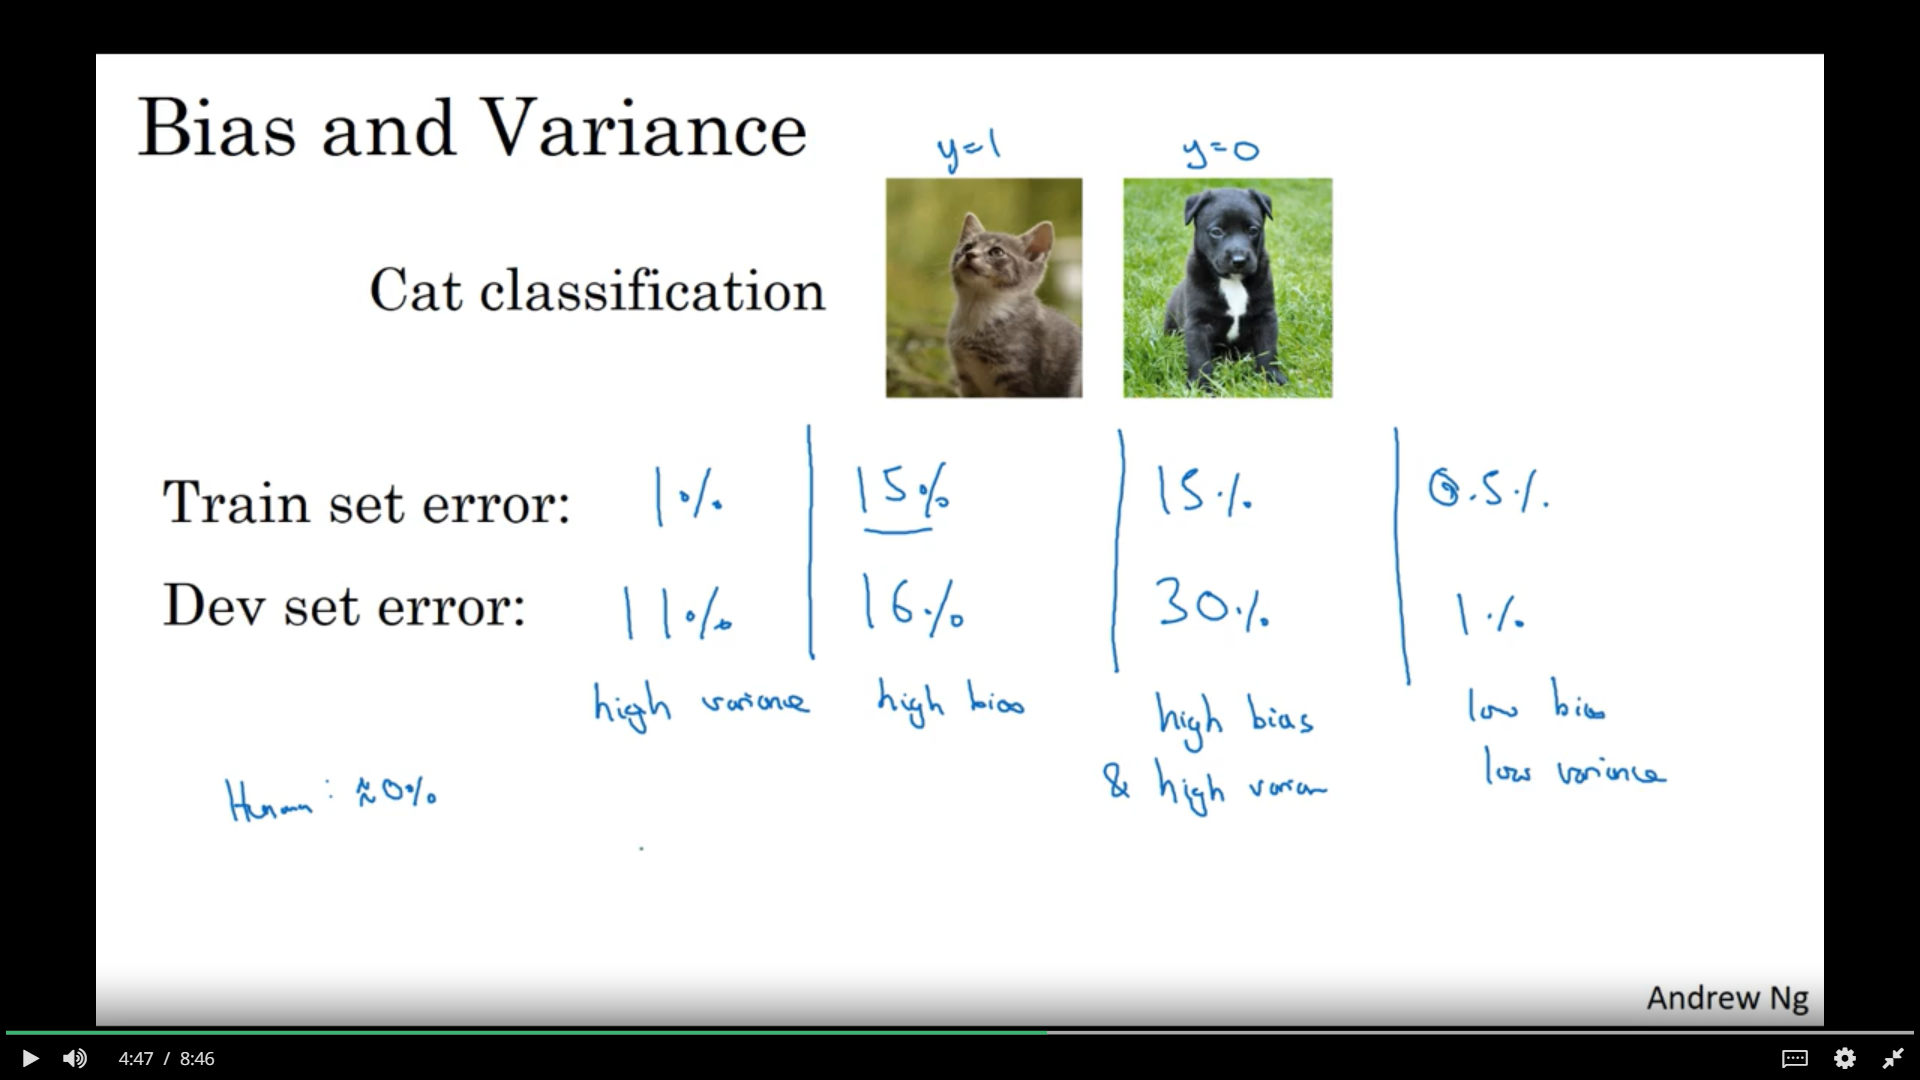 Bias and Variance
y=1 y=0
Cat classification
Train set error: 1% 15% 15% 0.5%
Dev set error: 11% 16% 30% 1%
high variance high bias high bias low bias
& high varian low variance
Human: ≈0%
Andrew Ng
4:47 / 8:46